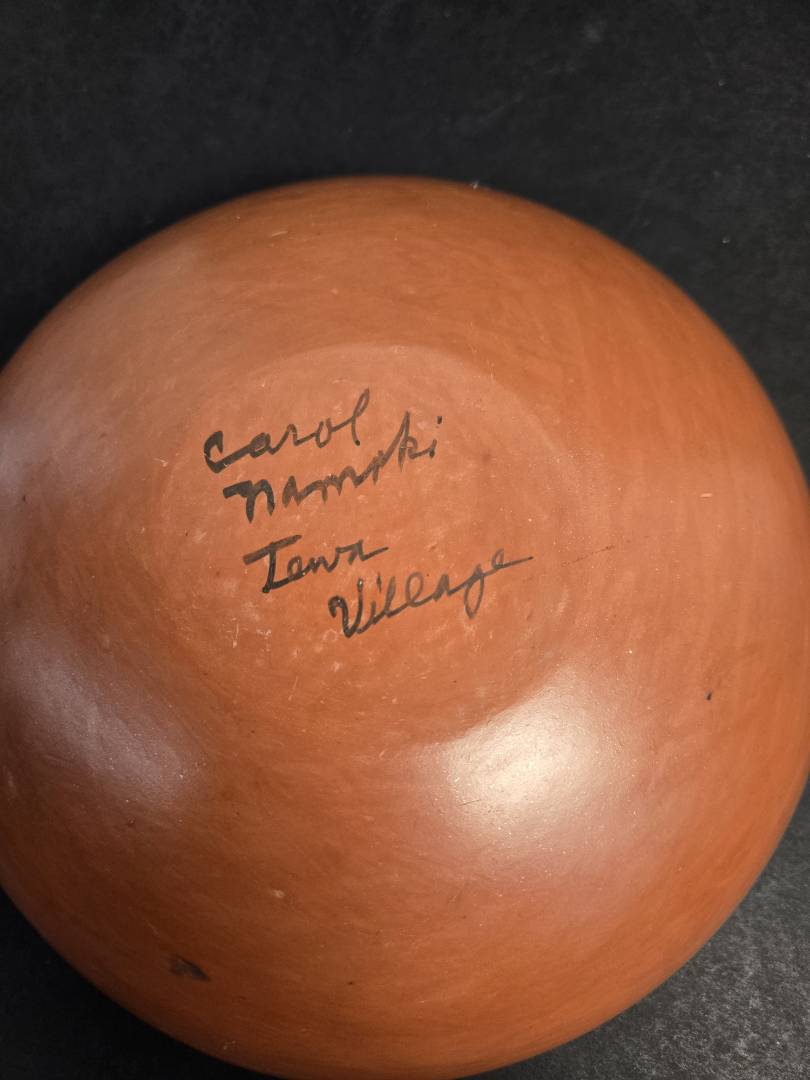 Carol
Namoki
Tewa
Village